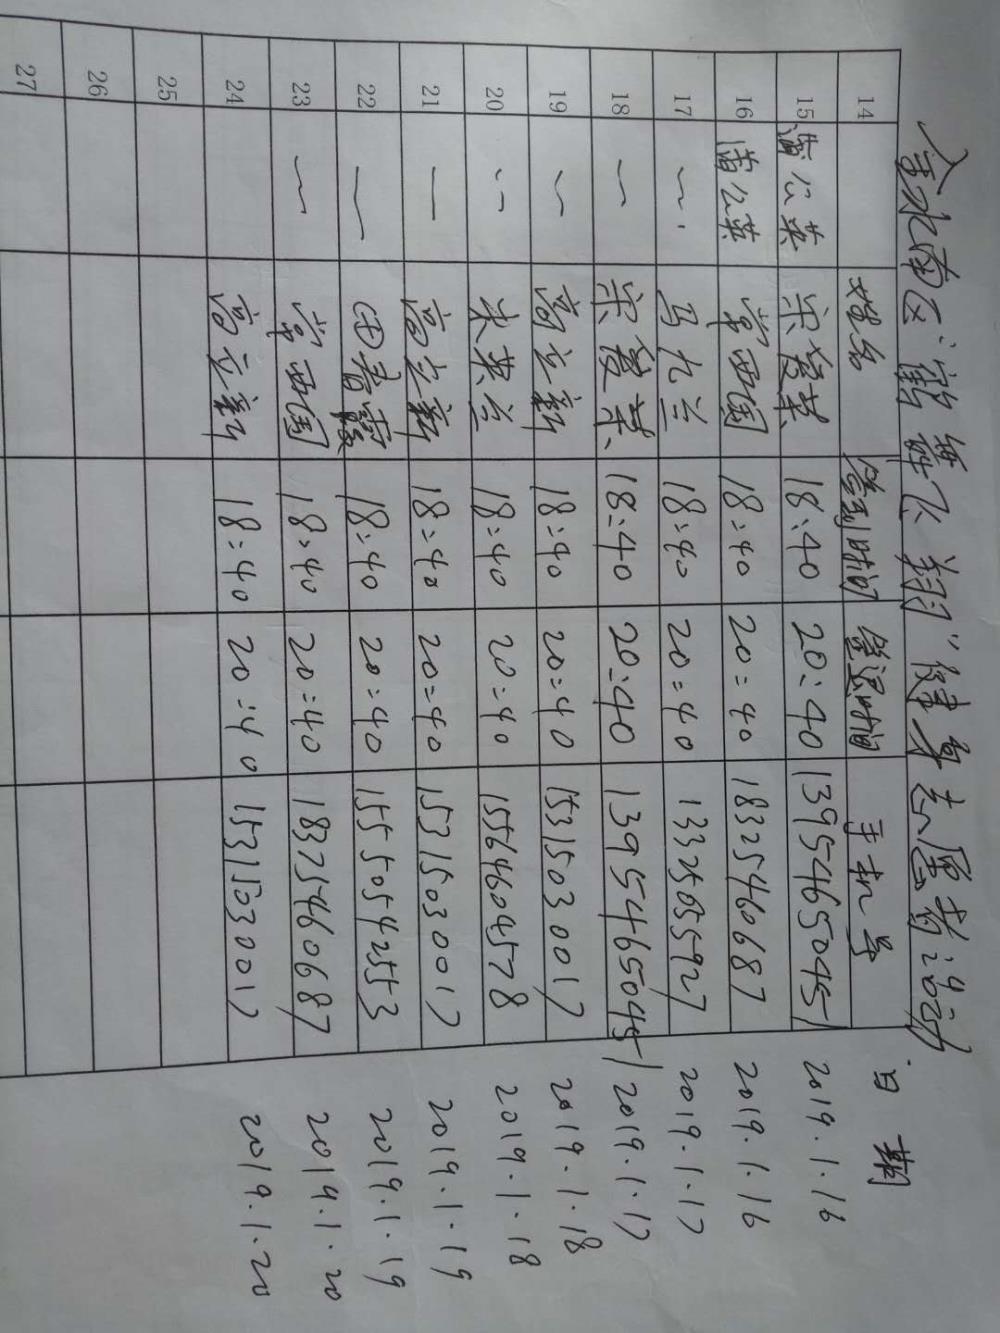 金水南区"鹤舞飞翔"健身志愿者活动
14 姓名 签到时间 签退时间 手机号 日期
15 蒲公英 宋爱荣 18:40 20:40 13954650451 2019.1.16
16 蒲公英 常西国 18:40 20:40 18325460687 2019.1.16
17 〃 马九兰 18:40 20:40 13325055927 2019.1.17
18 〃 宋爱荣 18:40 20:40 13954650451 2019.1.17
19 〃 高立新 18:40 20:40 15315030017 2019.1.18
20 〃 米英兰 18:40 20:40 15564604578 2019.1.18
21 — 高立新 18:40 20:40 15315030017 2019.1.19
22 — 田春霞 18:40 20:40 15550542553 2019.1.19
23 〃 常西国 18:40 20:40 18325460687 2019.1.20
24 高立新 18:40 20:40 15315030017 2019.1.20
25
26
27